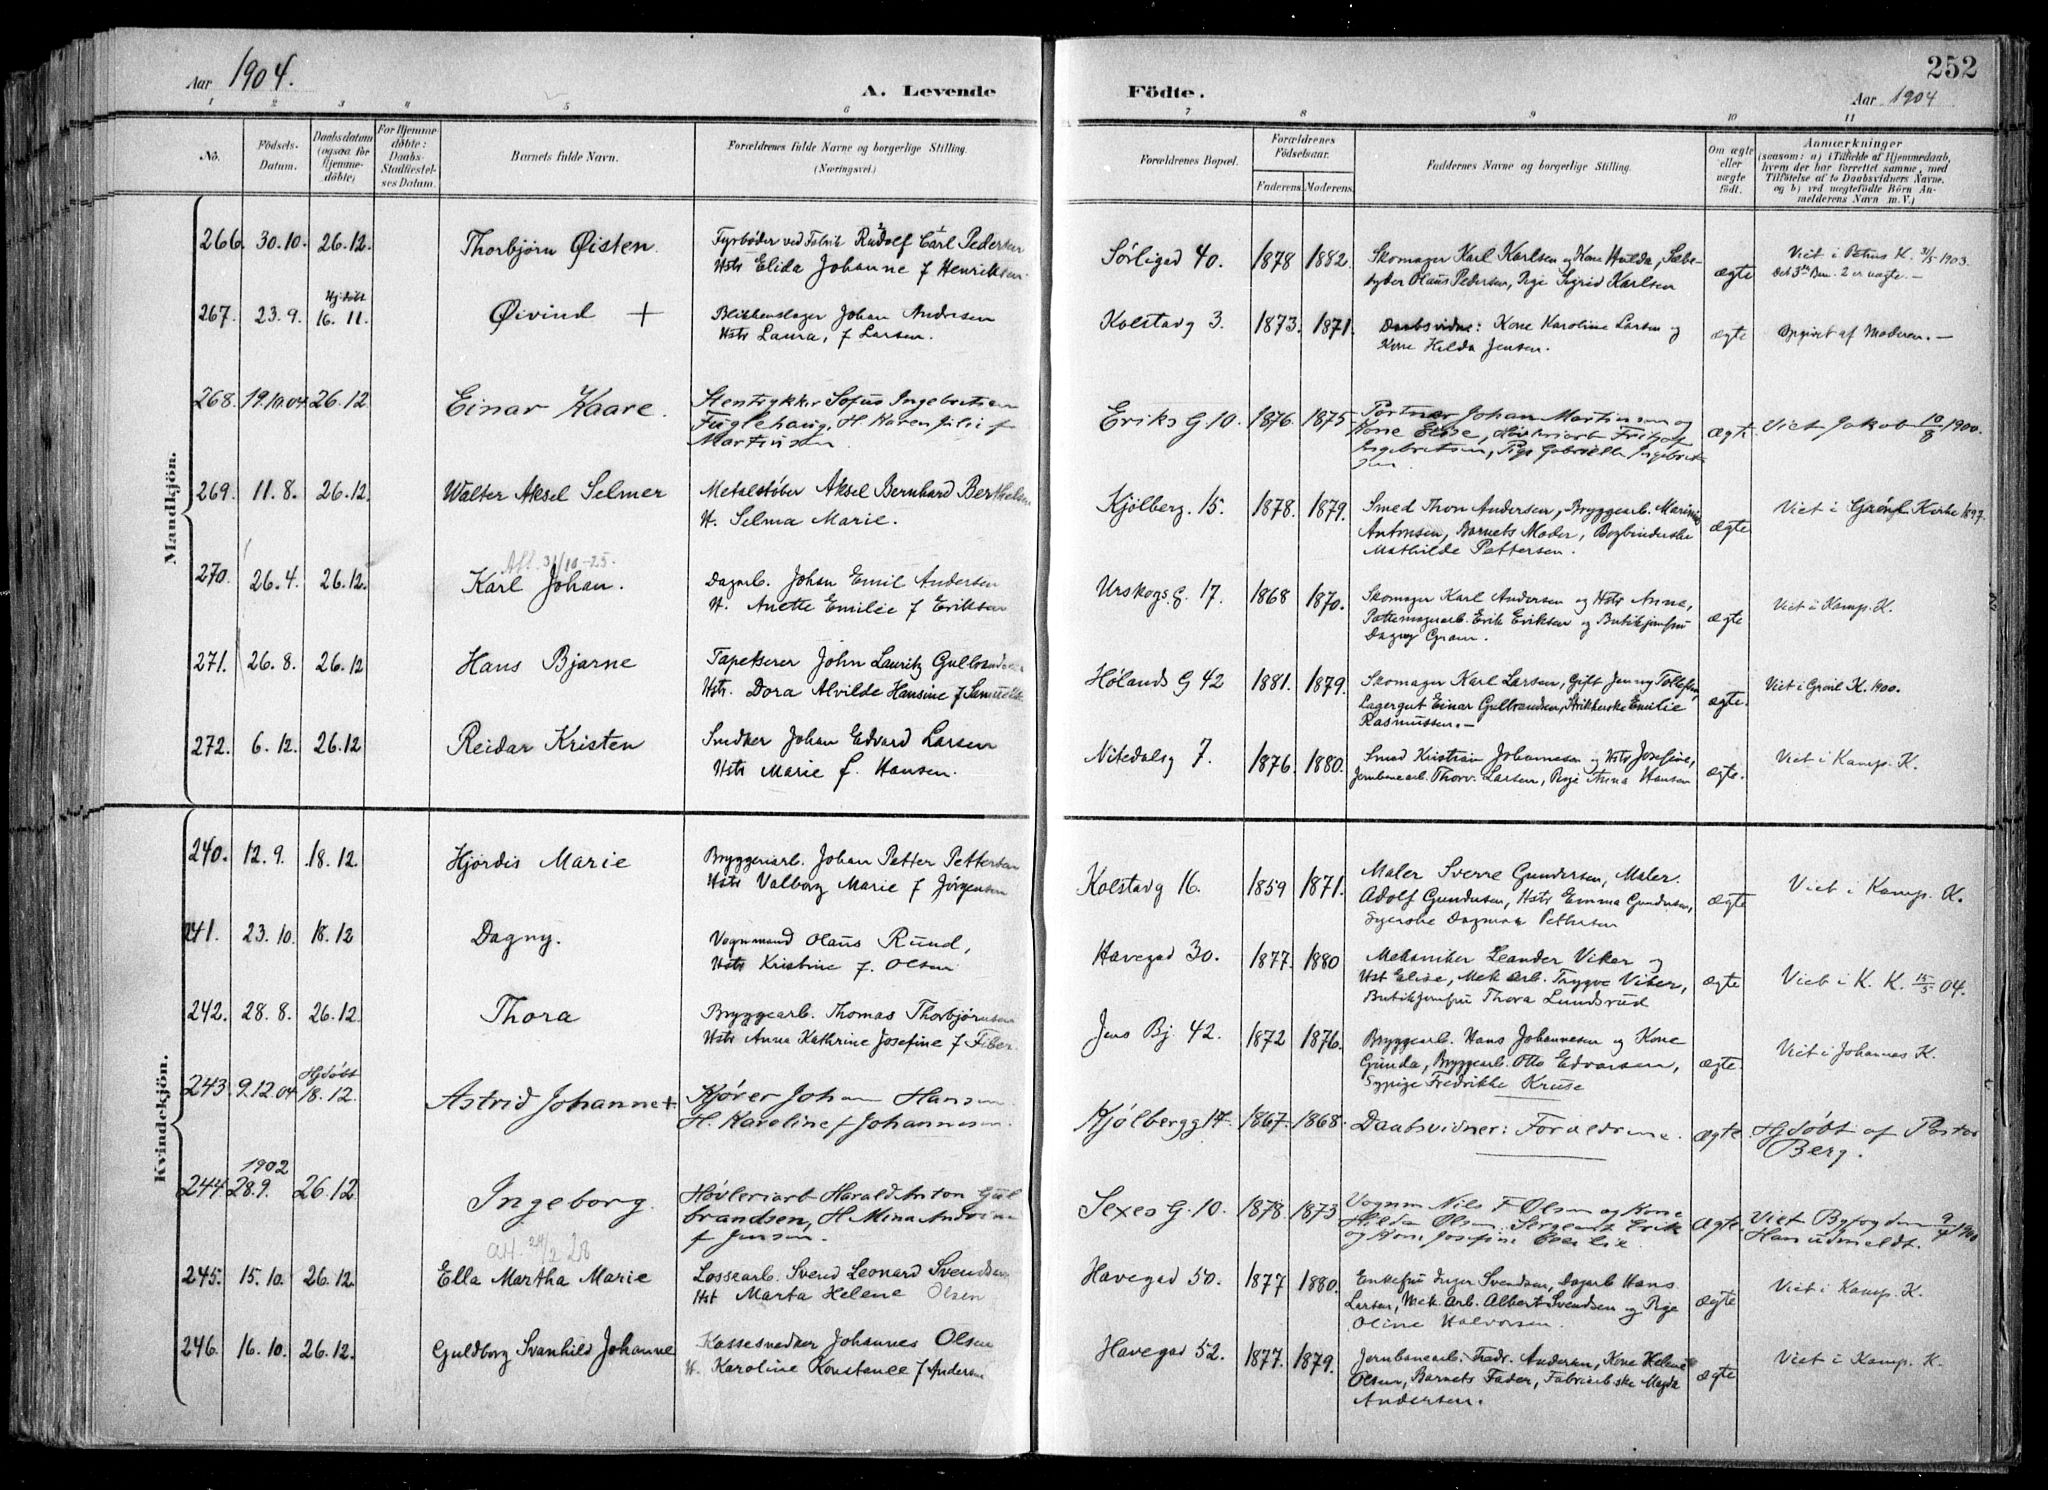 252
Aar 1904.
A. Levende
Födte.
Aar 1904
1 2 3 4 5 6 7 8 9 10 11
Nö.
Födsels-Datum.
Daabsdatum (ogsaa for Hjemme-döbte)
For Hjemme-döbte: Daabs-Stadfæstelses Datum.
Barnets fulde Navn.
Forældrenes fulde Navne og borgerlige Stilling. (Næringsvei.)
Forældrenes Bopæl.
Forældrenes Födselsaar.
Faderens. Moderens.
Faddernes Navne og borgerlige Stilling.
Om ægte eller uægte födt.
Anmærkninger
(saasom: a) i Tilfælde af Hjemmedaab,
hvem der har forrettet samme, med
Tilföielse af to Daabsvidners Navne,
og b) ved uægtefödte Börn An-
melderens Navn m. V.)
Mandkjön.
266. 30.10. 26.12. Thorbjørn Øisten. Fyrbøder ved Fabrik Rudolf Carl Pedersen
Hstr Elida Johanne f Henriksen
Sørligad 40. 1878 1882. Skomager Karl Karlsen og Kone Hulda,
Olaus Pedersen, Pige Sigrid Karlsen
ægte Viet i Petrus K. 31/5 1903.
Det 3die Barn. 2 er uægte. —
267. 23.9. Hj.døbt 16.11. Øivind + Blikkenslager Johan Andersen
Hstr Laura, f Larsen.
Kolstadg 3. 1873. 1871. Daabsvidne: Kone Karoline Larsen og
Kone Hilda Jensen.
ægte Opgivet af Moderen. —
268. 19.10.04 26.12 Einar Kaare. Stentrykker Sofus Ingebretsen
Fuglehaug, H. Karen Julie f
Martinsen
Eriks G 10. 1876. 1875 Portner Johan Martinsen og
Kone Elise, Høvleriarb Fritjof
Ingebretsen, Pige Gabrielle Ingebret-
sen
ægte Viet Jakob 10/8 1900.
269. 11.8. 26.12. Walter Aksel Selmer Metalstøber Aksel Bernhard Berthelsen
H. Selma Marie.
Kjølberg. 15. 1878. 1879. Smed Thorv Andersen, Bryggearb. Marinius
Antonsen, Barnets Moder, Bogbinderske
Mathilde Pettersen.
ægte Viet i Grønl Kirke 1897.
270. 26.4. 26.12. Att. 31/10-25. Karl Johan. Dagarb. Johan Emil Andersen
H. Anette Emilie f Eriksen
Urskogs G. 17. 1868 1870. Skomager Karl Andersen og Hstr Anna,
Erik Eriksen og Butikjomfru
Dagny Gram.
ægte Viet i Kamp. K.
271. 26.8. 26.12 Hans Bjarne Tapetserer John Lauritz Gulbrandsen
Hstr. Dora Alvilde Hansine f Samuelsen
Hølands G 42 1881. 1879. Skomager Karl Larsen, Gift Jenny Tollefsen,
Lagergut Einar Gulbrandsen, Strikkerske Emilie
Rasmussen. —
ægte. Viet i Grønl K. 1900.
272. 6.12. 26.12 Reidar Kristen Snedker Johan Edvard Larsen
Hstr Marie f. Hansen.
Nitedalsg 7. 1876. 1880. Smed Kristian Johannesen og Hstr Josefine,
Jernbanearb. Thorv. Larsen, Pige Anna Hansen
ægte. Viet i Kamp. K.
Kvindekjön.
240. 12.9. 18.12. Hjørdis Marie Bryggeriarb. Johan Petter Pettersen
Hstr Valborg Marie f Jørgensen
Kolstadg 16. 1859 1871. Maler Sverre Gundersen, Maler
Adolf Gundersen, Hstr Emma Gundersen,
Syerske Dagmar Pettersen
ægte Viet i Kamp. K.
241. 23.10. 18.12 Dagny. Vognmand Olaus Rund,
Hstr Kristine f. Olsen
Havegad 30. 1877. 1880 Mekaniker Leander Viker og
Hst Elise, Mek. Arb. Trygve Viker,
Butikjomfru Thora Lundsrud
ægte Viet i K. K. 15/5 04.
242. 28.8. 26.12. Thora Bryggearb. Thomas Thorbjørnsen
Hstr Anna Kathrine Josefine f Fiber.
Jens Bj 42. 1872 1876. Bryggearb. Hans Johannesen og Kone
Gunda, Bryggearb. Otto Edvarsen,
Sypige Fredrikke Kruse
ægte. Viet i Johannes K.
243. 9.12.04 Hjdøbt 18.12. Astrid Johanne + Kjører Johan Hansen
H. Karoline f Johannesen.
Kjølbergg 17. 1867. 1868. Daabsvidner: Forældrene.
ægte Hjdøbt af Pastor
Berg.
244. 1902 28.9. 26.12 Ingeborg. Høvleriarb Harald Anton Gul
brandsen, H. Mina Andrine
f Jensen.
Sexes G. 10. 1878. 1873 Vognm Nils F Olsen og Kone
Hilda Olsen. Sergeant Erik
og Kone Josefine
ægte Viet Byfogden 9/9 1900
Han udmeldt.
245. 15.10. 26.12. att. 24/2 28 Ella Martha Marie Lossearb. Svend Leonard Svendsen
Hst Marta Helene Olsen
Havegad 50. 1877 1880. Enkefru Inger Svendsen, Dagarb Hans
Larsen, Mek. Arb. Albert Svendsen og Pige
Oline Halvorsen.
ægte Viet i Kamp. K.
246. 16.10. 26.12. Guldborg Svanhild Johanne Kassesnedker Johannes Olsen
H. Karoline Konstanse f Andersen
Havegad 52. 1877. 1879. Jernbanearb. Fredr. Andersen, Kone Helene
Olsen, Barnets Fader, Fabrikarb.ske Magda
Andersen.
ægte Viet i Kamp. K.